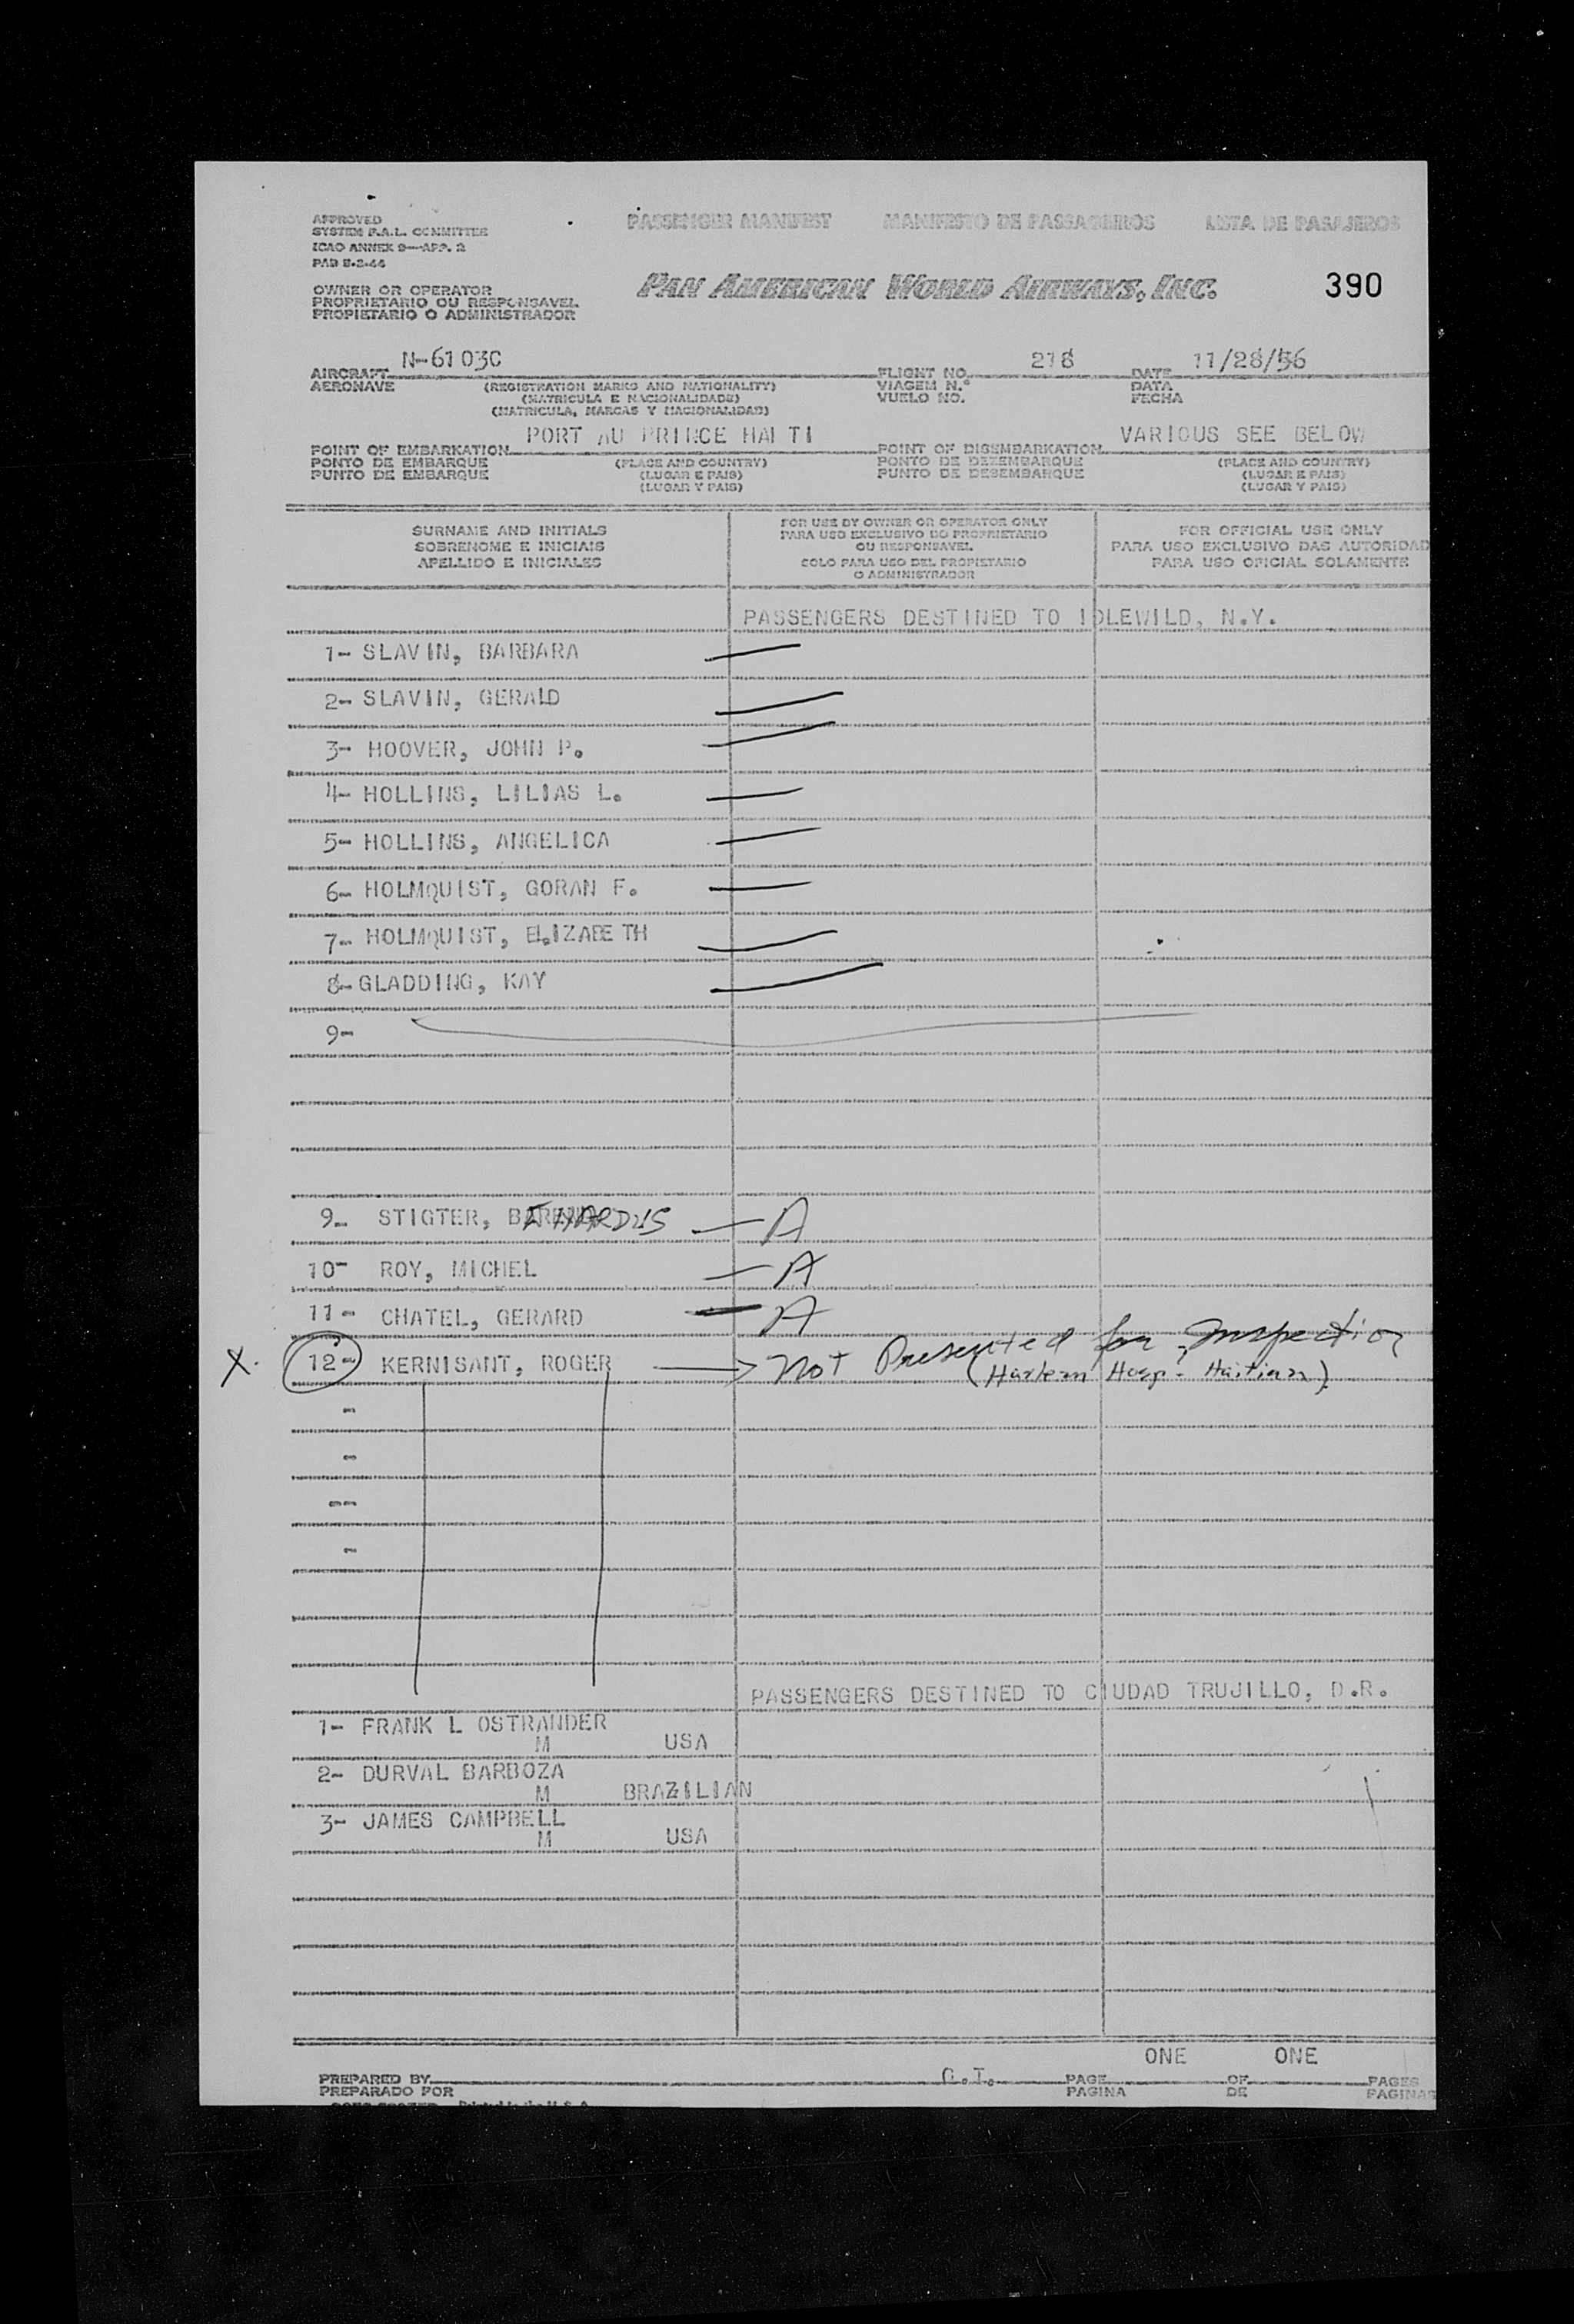 APPROVED
SYSTEM F.A.L. COMMITTEE
ICAO ANNEX 9—APP. 2
PASSENGER MANIFEST MANIFESTO DE PASSAGEIROS LISTA DE PASAJEROS
OWNER OR OPERATOR
PROPRIETARIO OU RESPONSAVEL
PROPIETARIO O ADMINISTRADOR
PAN AMERICAN WORLD AIRWAYS, INC. 390
AIRCRAFT N-6103C FLIGHT NO. 218 DATE 11/28/56
AERONAVE (REGISTRATION MARKS AND NATIONALITY) VIAGEM N.º DATA
(MATRICULA E NACIONALIDADE) VUELO NO. FECHA
(MATRICULA, MARCAS Y NACIONALIDAD)
POINT OF EMBARKATION PORT AU PRINCE HAI TI POINT OF DISEMBARKATION VARIOUS SEE BELOW
PONTO DE EMBARQUE (PLACE AND COUNTRY) PONTO DE DEZEMBARQUE (PLACE AND COUNTRY)
PUNTO DE EMBARQUE (LUGAR E PAIS) PUNTO DE DESEMBARQUE (LUGAR E PAIS)
(LUGAR Y PAIS) (LUGAR Y PAIS)
SURNAME AND INITIALS FOR USE BY OWNER OR OPERATOR ONLY FOR OFFICIAL USE ONLY
SOBRENOME E INICIAIS PARA USO EXCLUSIVO DO PROPRIETARIO PARA USO EXCLUSIVO DAS AUTORIDAD
APELLIDO E INICIALES OU RESPONSAVEL PARA USO OFICIAL SOLAMENTE
SOLO PARA USO DEL PROPIETARIO
O ADMINISTRADOR
PASSENGERS DESTINED TO IDLEWILD, N.Y.
1- SLAVIN, BARBARA
2- SLAVIN, GERALD
3- HOOVER, JOHN P.
4- HOLLINS, LILIAS L.
5- HOLLINS, ANGELICA
6- HOLMQUIST, GORAN F.
7- HOLMQUIST, ELIZABE TH
8- GLADDING, KAY
9-
9- STIGTER, — A
10- ROY, MICHEL — A
11- CHATEL, GERARD — A
X. 12- KERNISANT, ROGER → Not Presented for Inspection
(Harlem Hosp. Haitian)
-
-
--
-
PASSENGERS DESTINED TO CIUDAD TRUJILLO, D.R.
1- FRANK L OSTRANDER
M USA
2- DURVAL BARBOZA
M BRAZILIAN
3- JAMES CAMPBELL
M USA
ONE ONE
PREPARED BY PAGE OF PAGES
PREPARADO POR PAGINA DE PAGINAS